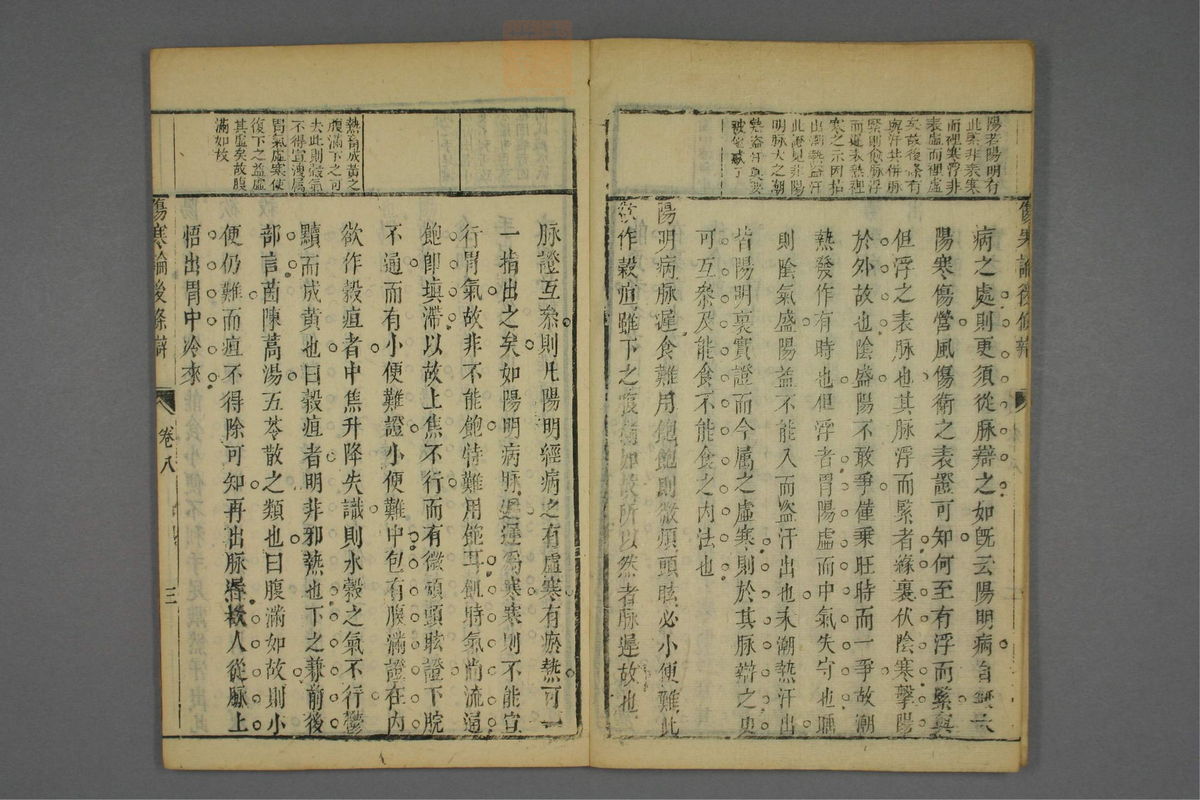 陽若陽明有
此緊非表寒
而裡寒浮非
表虛而裡虛
矣故後條有
與汗共併脉
緊則愈脉浮
而遲表熱裡
寒之示因指
出潮熱盜汗
此證見非陽
明脉大之潮
熱盜汗莫要
被他賺了
傷寒論後條辯
病之處則更須從脉辯之如旣云陽明病
陽寒傷營風傷衛之表證可知何至有浮而緊與
但浮之表脉也其脉浮而緊者緣裏伏陰寒擊陽
於外故也陰盛陽不敢爭僅乘旺時而一爭故潮
熱發作有時也但浮者胃陽虛而中氣失守也
則陰氣盛陽益不能入而盜汗出也夫潮熱汗出
皆陽明裏實證而今属之虛寒則於其脉辯之更
可互叅及能食不能食之內法也
陽明病脉遲食難用飽飽則微煩頭眩必小便難此
欲作穀疸雖下之腹滿如故所以然者脉遲故也
熱畜成黃之
腹滿下之可
去此則穀氣
不得宣洩属
胃氣虛寒使
復下之益虛
其虛矣故腹
滿如故
脉證互叅則凡陽明經病之有虛寒有瘀熱可一
一指出之矣如陽明病脉遲遲爲寒寒則不能宣
行胃氣故非不能飽特難用飽耳飢時氣尚流通
飽卽塡滯以故上焦不行而有微煩頭眩證下脘
不通而有小便難證小便難中包有腹滿證在內
欲作穀疸者中焦升降失識則水穀之氣不行鬱
黷而成黃也曰穀疸者明非邪熱也下之兼前後
部言茵陳蒿湯五苓散之類也曰腹滿如故則小
便仍難而疸不得除可知再出脉遲教人從脉上
悟出胃中冷來
傷寒論後條辯
卷八
三